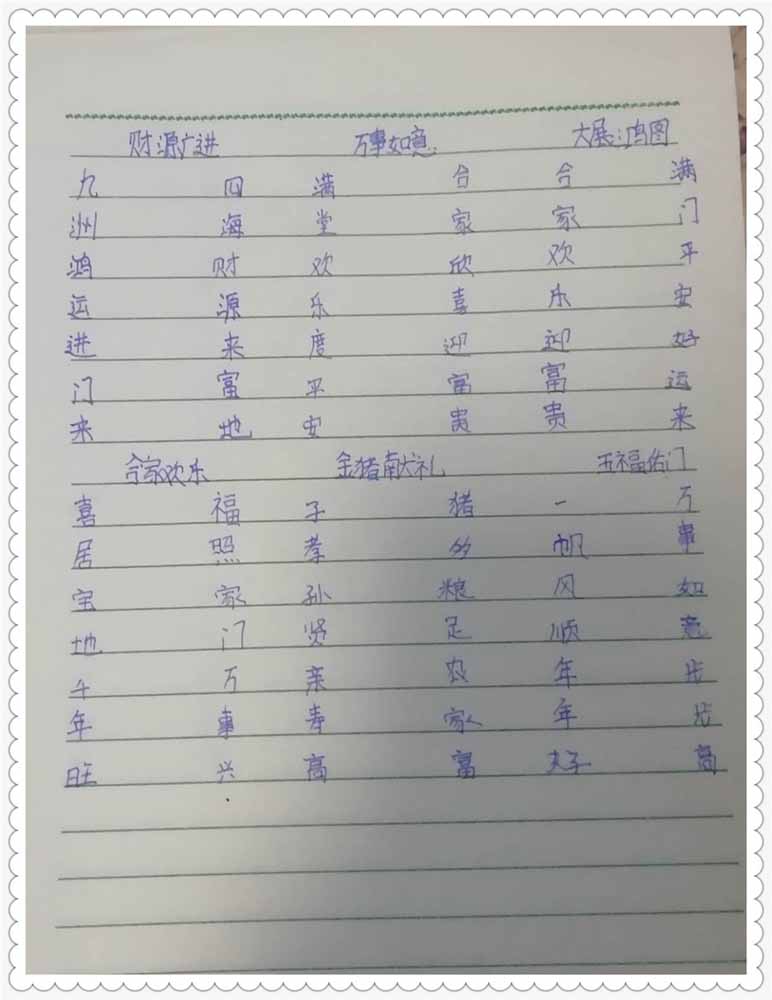 财源广进 万事如意 大展鸿图
九洲鸿运进门来
四海财源来富地
满堂欢乐度平安
合家欣喜迎富贵
合家欢乐迎富贵
满门平安好运来
合家欢乐 金猪献礼 五福佑门
喜居宝地千年旺
福照家门万事兴
子孝孙贤亲寿高
猪多粮足农家富
一帆风顺年年好
万事如意步步高